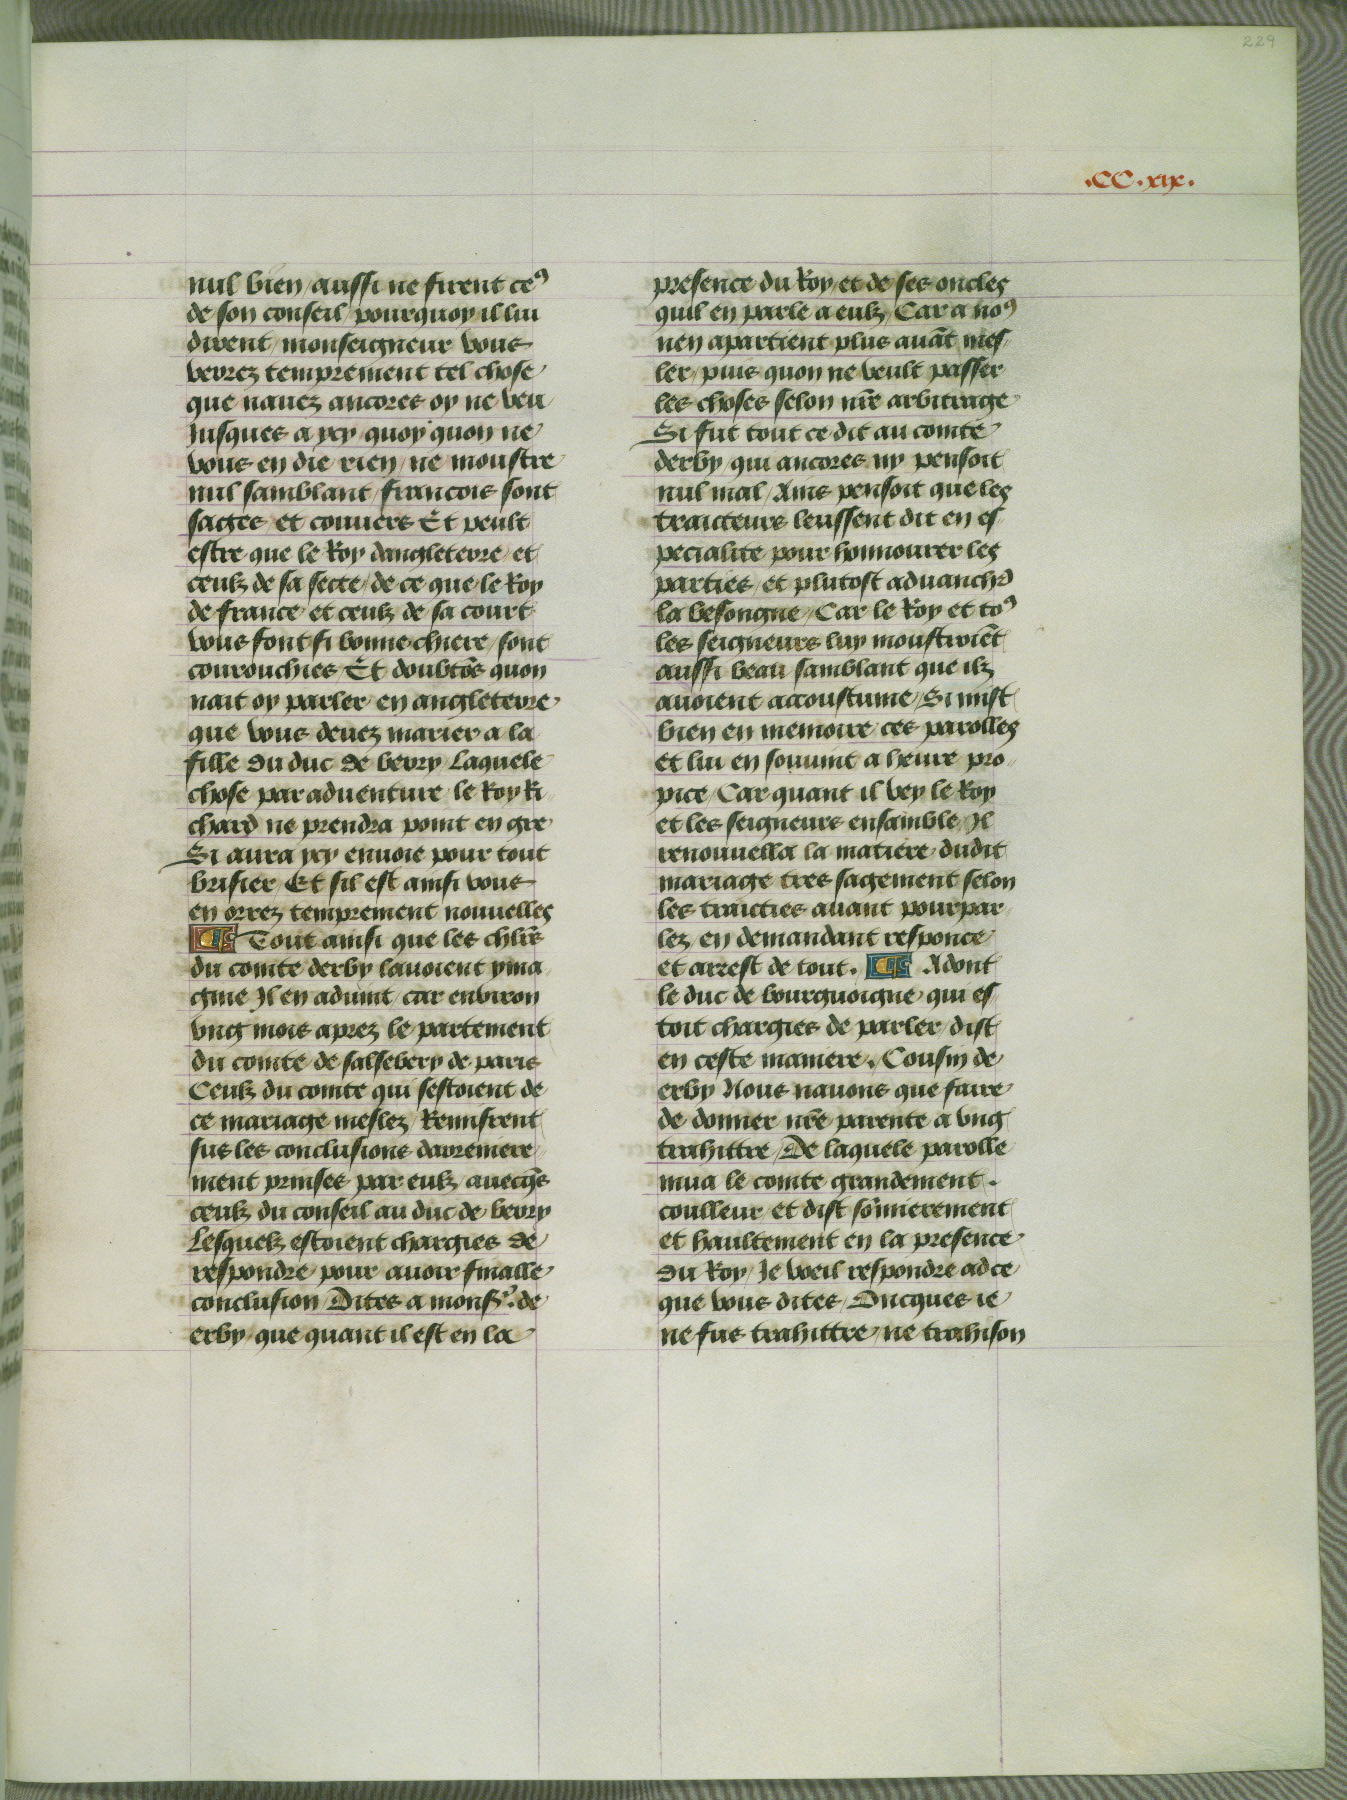 229
.CC.xix.
nul bien / aussi ne firent ceꝰ
de son conseil / pourquoy il lui
dirent / monseigneur vous
verrez temprement tel chose
que nauez ancores oy ne veu
Jusques a ycy / quoy quon ne
vous en die rien / ne moustre
nul samblant / francois sont
sages et couuers Et peult
estre que le Roy dangleterre et
ceulz de sa secte / de ce que le Roy
de france et ceulz de sa court
vous font si bonne chiere / sont
courouchies Et doubtōs quon
nait oy parler en angleterre
que vous deuez marier a la
fille du duc de berry Laquele
chose par aduenture le Roy Ri
chard ne prendra point en gre
Si aura ycy enuoie pour tout
brisier Et sil est ainsi vous
en orrez temprement nouuelles
¶ Tout ainsi que les chl̄rs
du comte derby lauoient yma
gine Il en aduint / car enuiron
vng mois aprez le partement
du comte de salsebery de paris
Ceulz du comte qui sestoient de
ce mariage meslez / Remisrent
sus les conclusions darreniere
ment prinses par eulz auecqs̄
ceulz du conseil au duc de berry
Lesquelz estoient chargies de
respondre pour auoir finalle
conclusion / Dites a monsr. de
erby / que quant il est en la
presence du Roy / et de ses oncles
quil en parle a eulz / Car a noꝰ
nen apartient plus auāt mes
ler / puis quon ne veult passer
les choses selon nr̄e arbitrage
Si fut tout ce dit au comte
derby / qui ancores ny pensoit
nul mal / Ains pensoit que les
traicteurs leussent dit en es
pecialite pour honnourer les
parties / et plutost aduanchr̄
la besongne / Car le Roy et toꝰ
les seigneurs luy moustroiēt
aussi beau samblant que ilz
auoient accoustume / Si mist
bien en memoire ces parolles
et lui en souuint a heure pro
pice / Car quant il vey le Roy
et les seigneurs ensamble / Il
renouuella la matiere dudit
mariage tres sagement selon
les traicties auant pourpar
lez en demandant responce
et arrest de tout. ¶ Adont
le duc de bourguoigne qui es
toit chargies de parler / dist
en ceste maniere. Cousin de
erby Nous nauons que faire
de donner nr̄e parente a vng
trahittre / De laquele parolle
mua le comte grandement.
coulleur et dist so̅nierement
et haultement en la presence
du Roy / Je voeil respondre ad ce
que vous dites / Oncques ie
ne fus trahittre / ne trahison